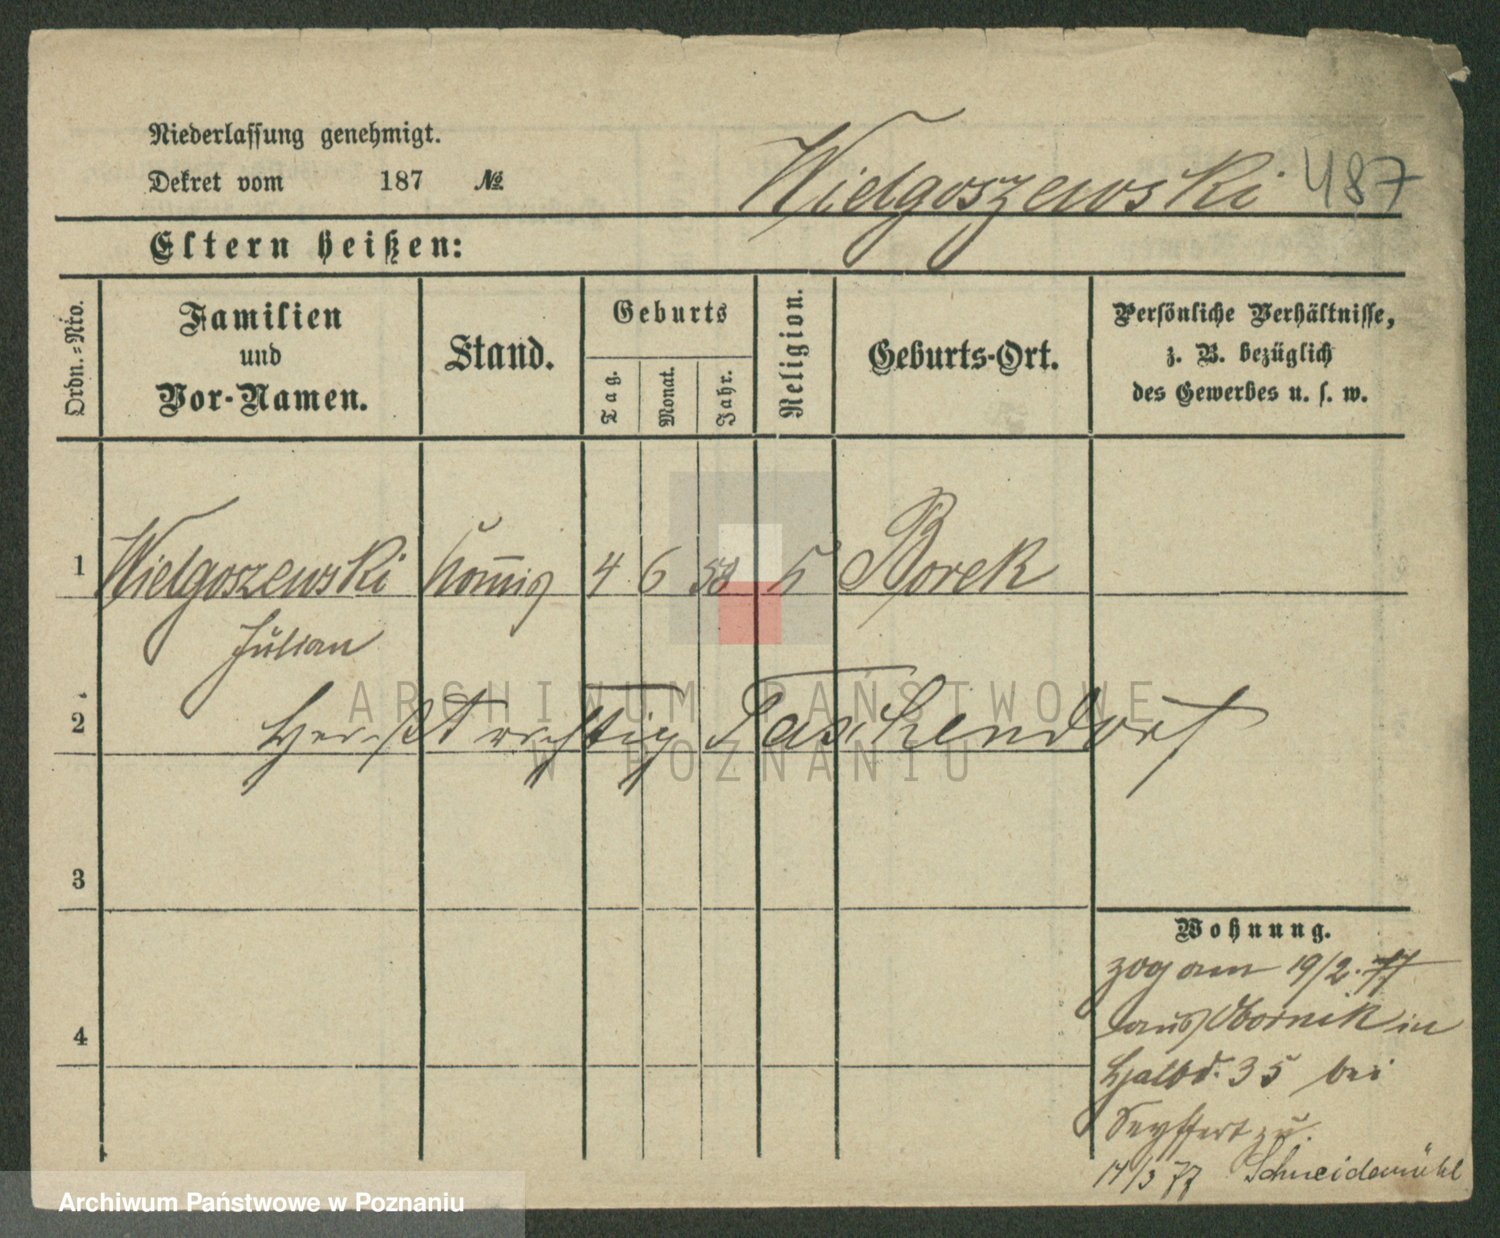 Niederlassung genehmigt.
Dekret vom 187 №
Wielgoszewski 487
Eltern heißen:
Ordn.-Nro.
Familien
und
Vor-Namen.
Stand.
Geburts
Tag.
Monat.
Jahr.
Religion.
Geburts-Ort.
Persönliche Verhältnisse,
z. B. bezüglich
des Gewerbes u. s. w.
1 Wielgoszewski Commis 4 6 58 k Borek
Julian
2 Heißt richtig Taschendorf
ARCHIWUM PAŃSTWOWE
W POZNANIU
3
Wohnung.
zog am 19/2. 77
aus Obornik in
4
Halbd. 35 bei
Seyffert zu.
14/3 77 Schneidemühl
Archiwum Państwowe w Poznaniu